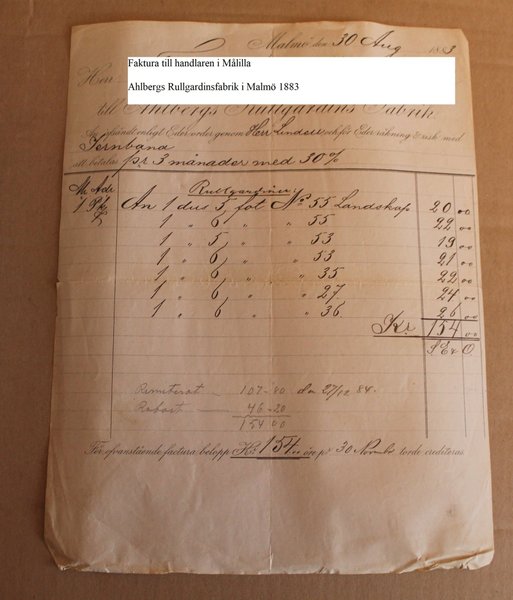 Malmö den 30 Aug 1883
Faktura till handlaren i Målilla
Ahlbergs Rullgardinsfabrik i Malmö 1883
Herr
till Ahlbergs Rullgardins Fabrik
afsändt enligt Eder order genom Herr Linden och för Eder räkning & risk med
Jernbana
att betalas pr 3 månader med 30%
Rullgardiner:
1 An 1 dus 5 fot No 55 Landskap 20 00
1 " 6 " " 55 22 00
1 " 5 " " 53 19 00
1 " 6 " " 53 21 00
1 " 6 " " 35 22 00
1 " 6 " " 27 24 00
1 " 6 " " 36 26 00
Kr. 154 00
S E & O
Remiterat 107-80 den 27/02 84.
Rabatt 46-20
154 00
För ofvanstående factura belopp Kr 154 öre pr 30 Novembr torde crediteras